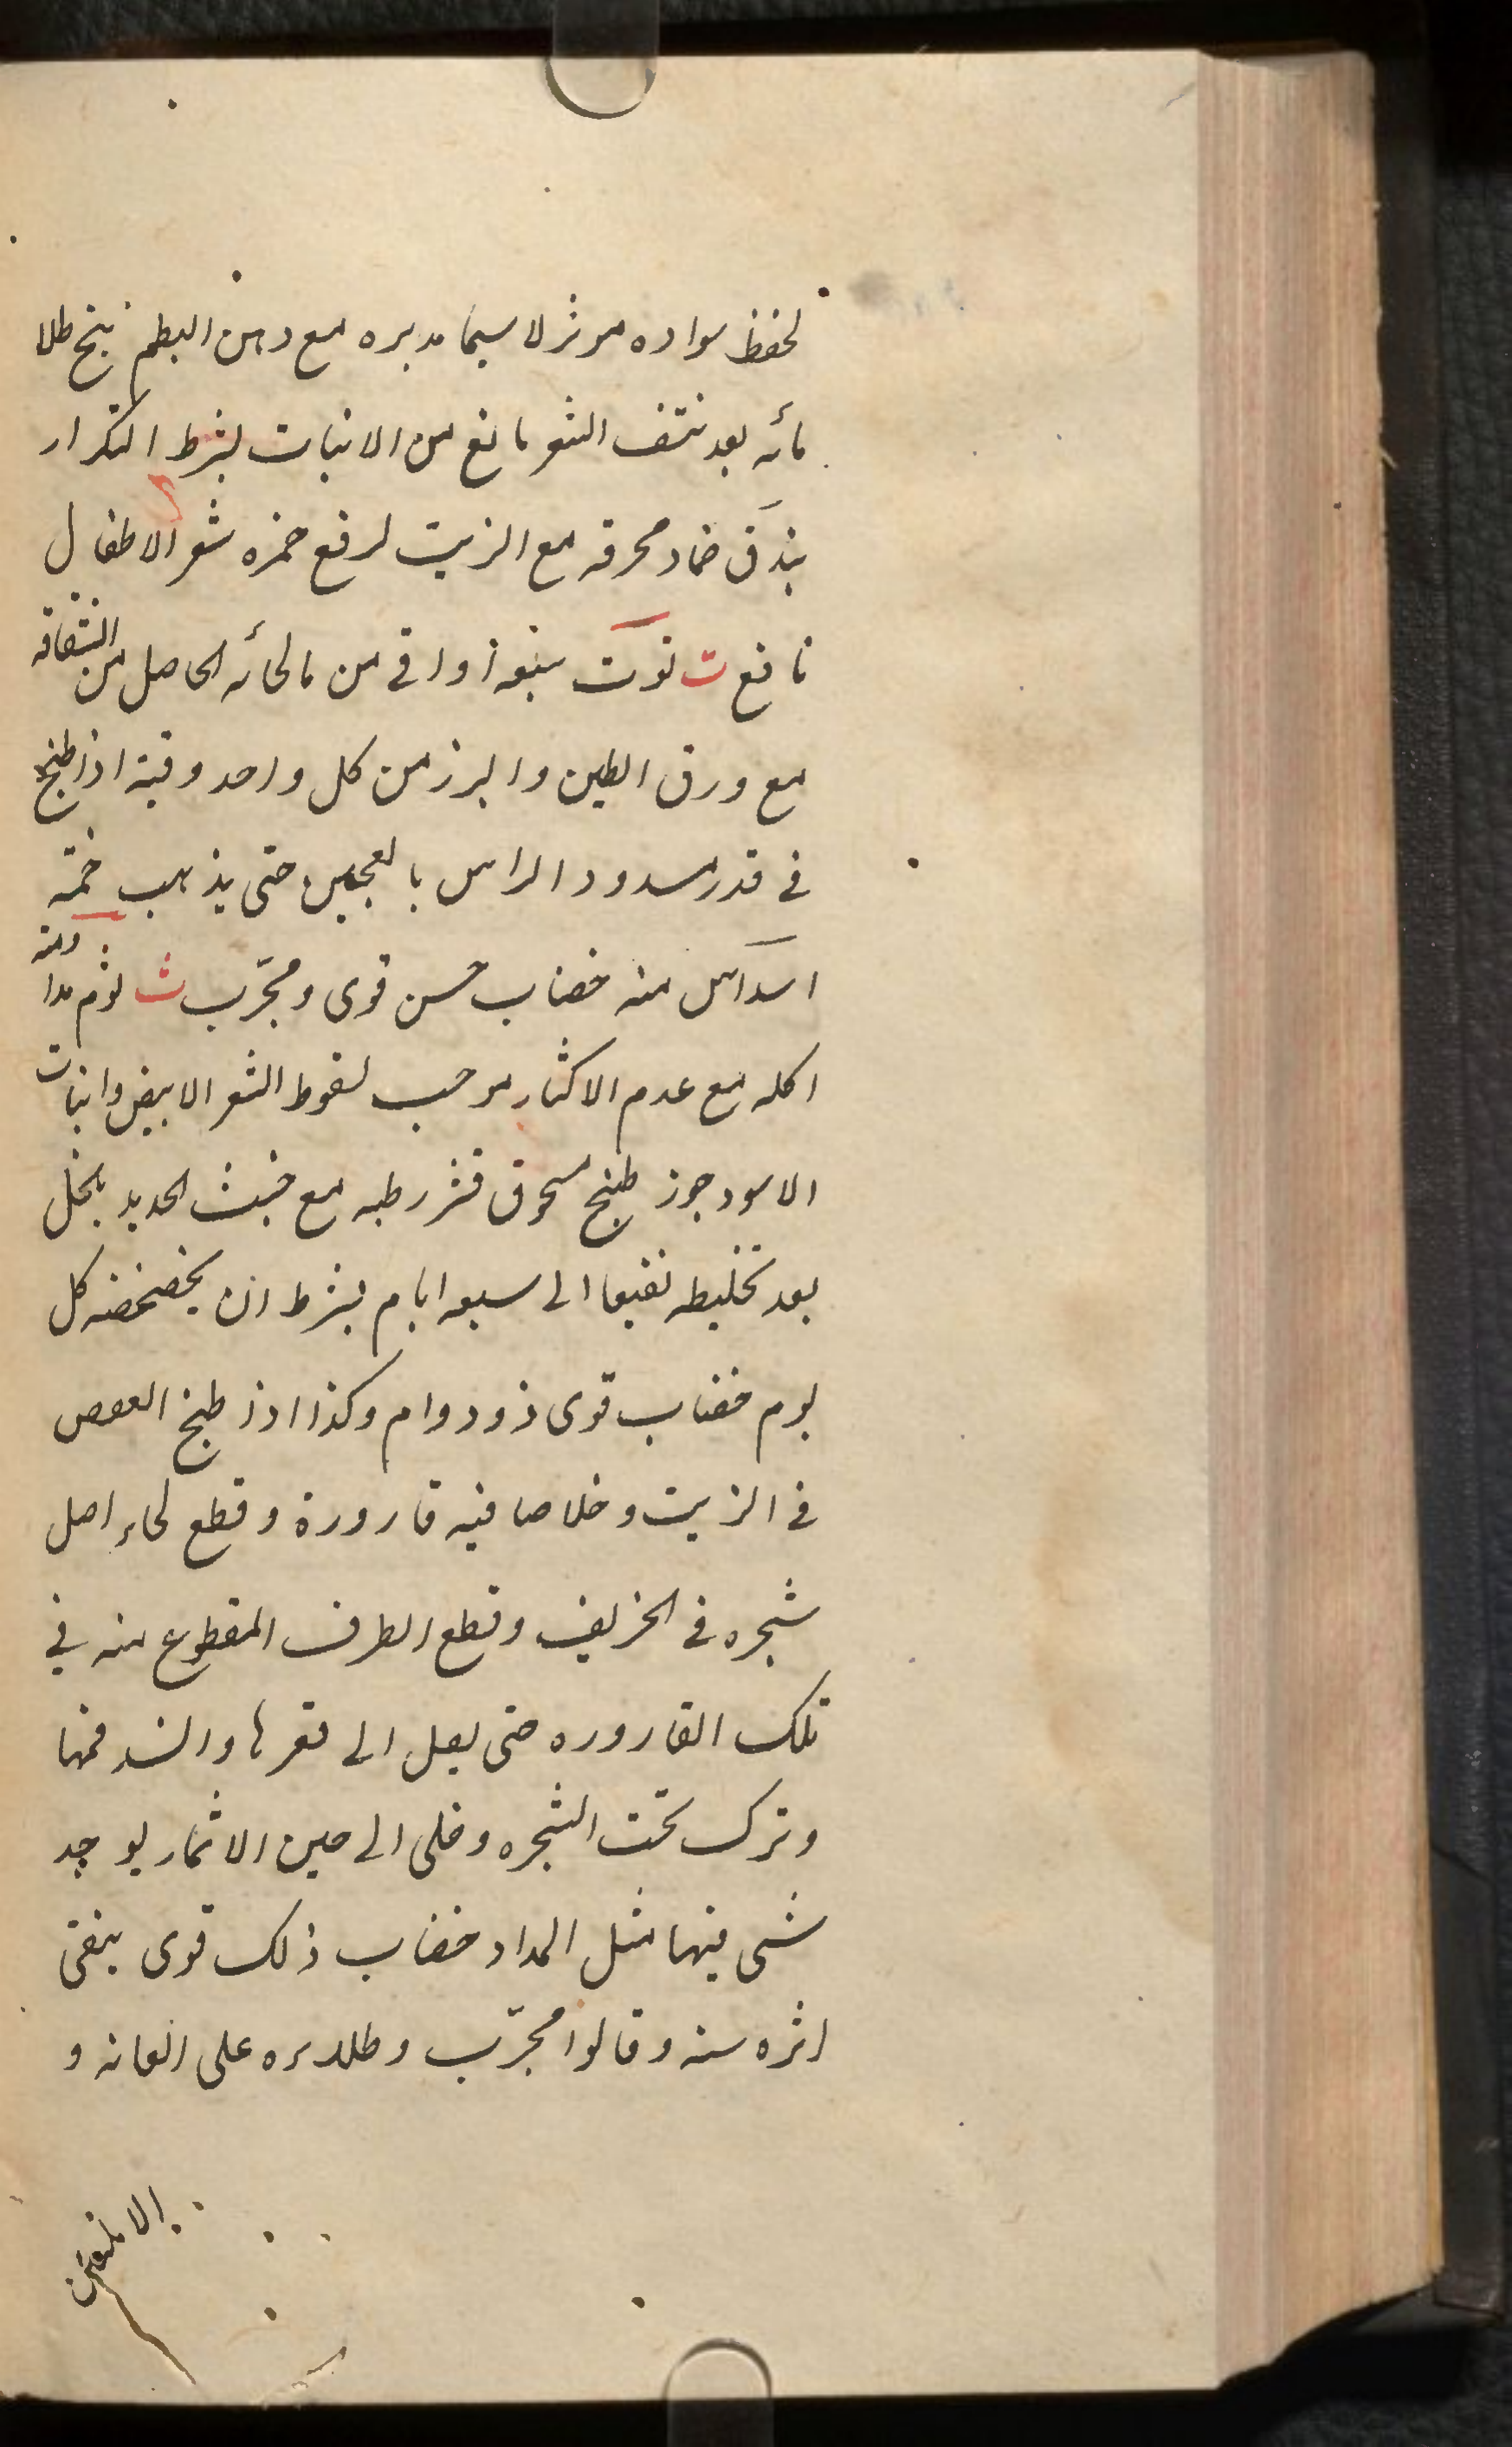 لحفظ سواده موثر لا سيما مدبره مع دهن البطم بنج طلا
مائه بعد نتف الشعر مانع من الانبات بشرط التكرار
بندق ضماد محرقه مع الزيت لرفع حمزه شعر الاطفال
نافع ت توت سبعة اواقى من مائه الحاصل من
مع ورق الطين والبزر من كل واحد وقية اذا طبخ
فى قدر مسدود الراس بالعجين حتى يذهب خمسة
اسداس منه خضاب حسن قوى ومجرّب ث ثوم مداومة
اكله مع عدم الاكثار موجب لسقوط الشعر الابيض وانبات
الاسود جوز طبخ مسحوق قشر رطبه مع خبث الحديد بالخل
بعد تخليطه نقيعا الى سبعه ايام بشرط ان يخضخضه كل
يوم خضاب قوى ذو دوام وكذا اذا طبخ العفص
فى الزيت وخلا صافيه قارورة وقطع لحاء اصل
شجره فى الخريف وقطع الطرف المقطوع منه فى
تلك القاروره حتى يصل الى قعرها والسد فمها
وترك تحت الشجره وخلى الى حين الاثمار يوجد
شى فيها مثل المداد خضاب ذلك قوى يبقى
اثره سنه وقالوا مجرّب وطلا على العانه و